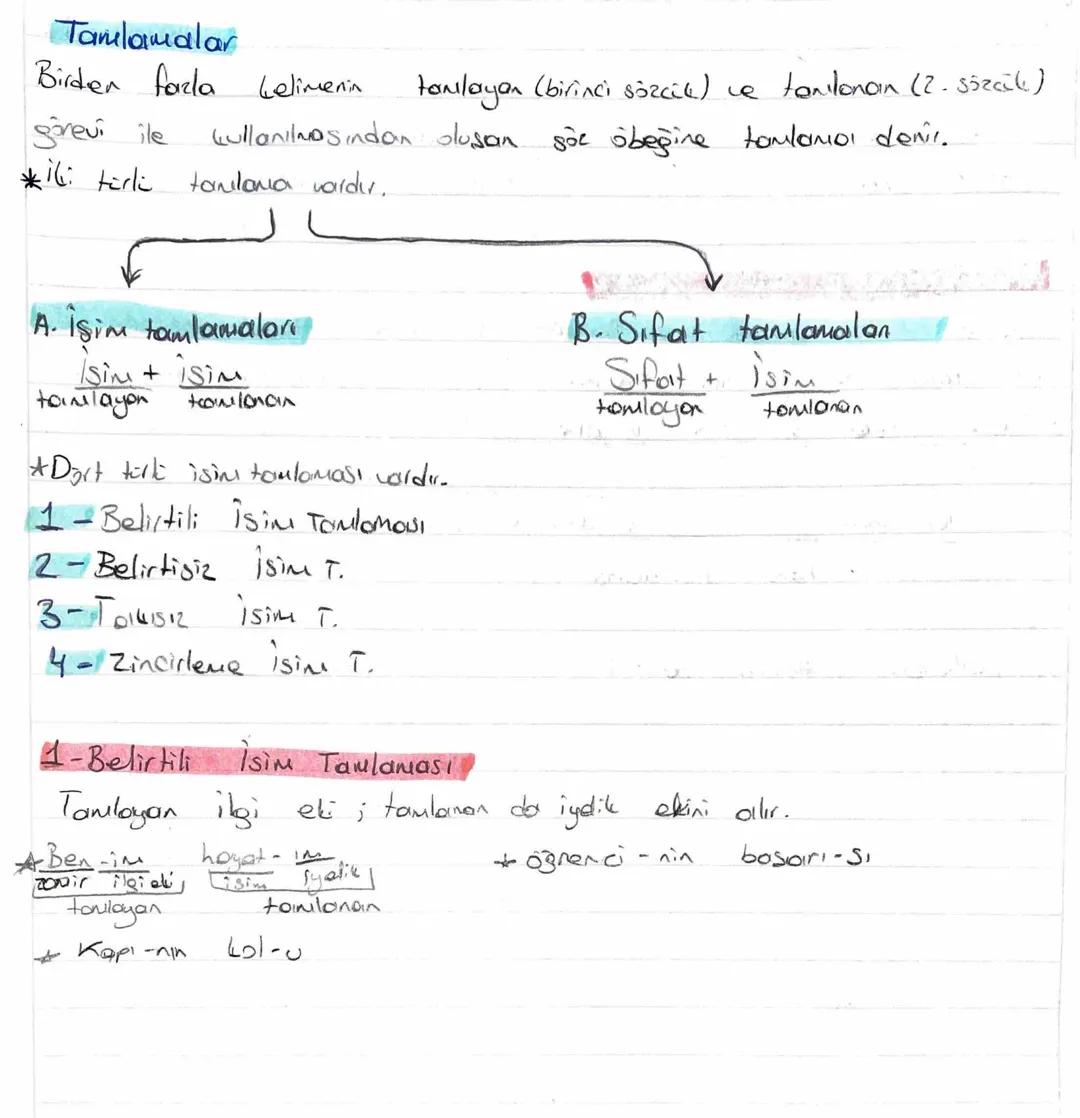 Tamlamalar
Birden fazla kelimenin tamlayan (birinci sözcük) ve tamlanan (2. sözcük)
görevi ile kullanılmasından oluşan söz öbeğine tamlama denir.
*İki türlü tamlama vardır.
A. İsim tamlamaları B. Sıfat tamlamaları
İsim + isim Sıfat + İsim
tamlayan tamlanan tamlayan tamlanan
*Dört türlü isim tamlaması vardır.
1 - Belirtili İsim Tamlaması
2 - Belirtisiz İsim T.
3 - Takısız İsim T.
4 - Zincirleme İsim T.
1 - Belirtili İsim Tamlaması
Tamlayan ilgi eki ; tamlanan da iyelik ekini alır.
*Ben -im hayat - ım * öğrenci - nin başarı -sı
zamir ilgi eki isim iyelik
tamlayan tamlanan
* Kapı -nın kol -u